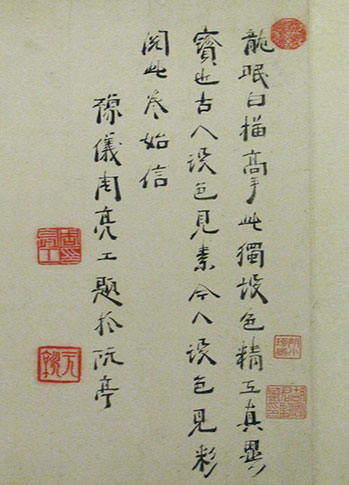 龍眠白描高手此獨設色精工真異
寳也古人設色見素今人設色見彩
閱此卷始信
豫儀周亮工題於阮亭
周亮工印
元亮